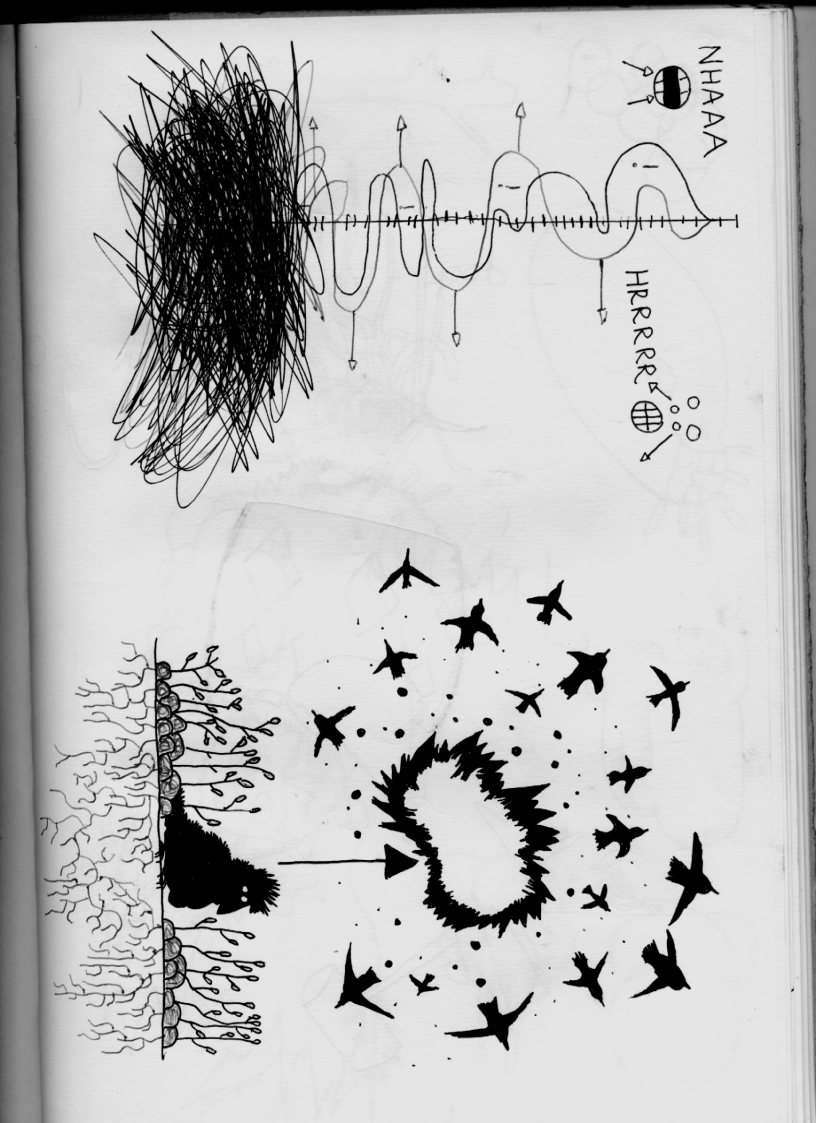 NHAAA
HRRRRR
!
!
!